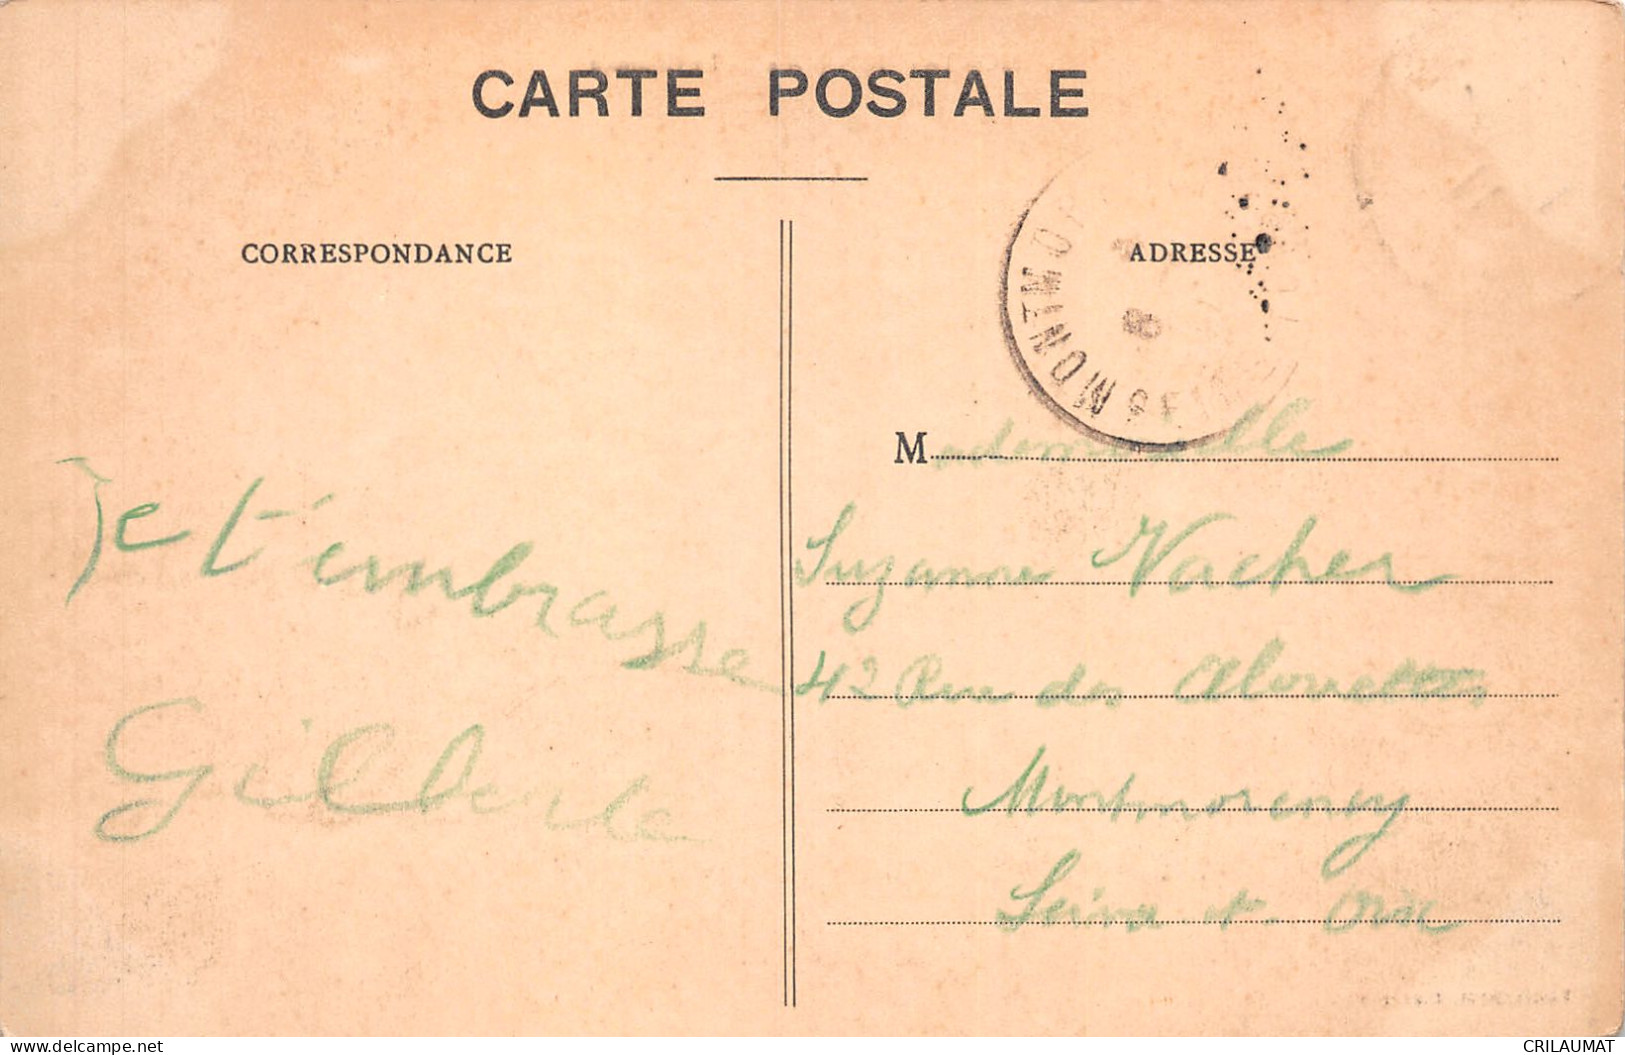 CARTE POSTALE
CORRESPONDANCE
ADRESSE
Mademoiselle
Suzanne Vacher
42 Rue des Alouettes
Montmorency
Seine et Oise
Je t'embrasse
Gilberte
www.delcampe.net
CRILAUMAT